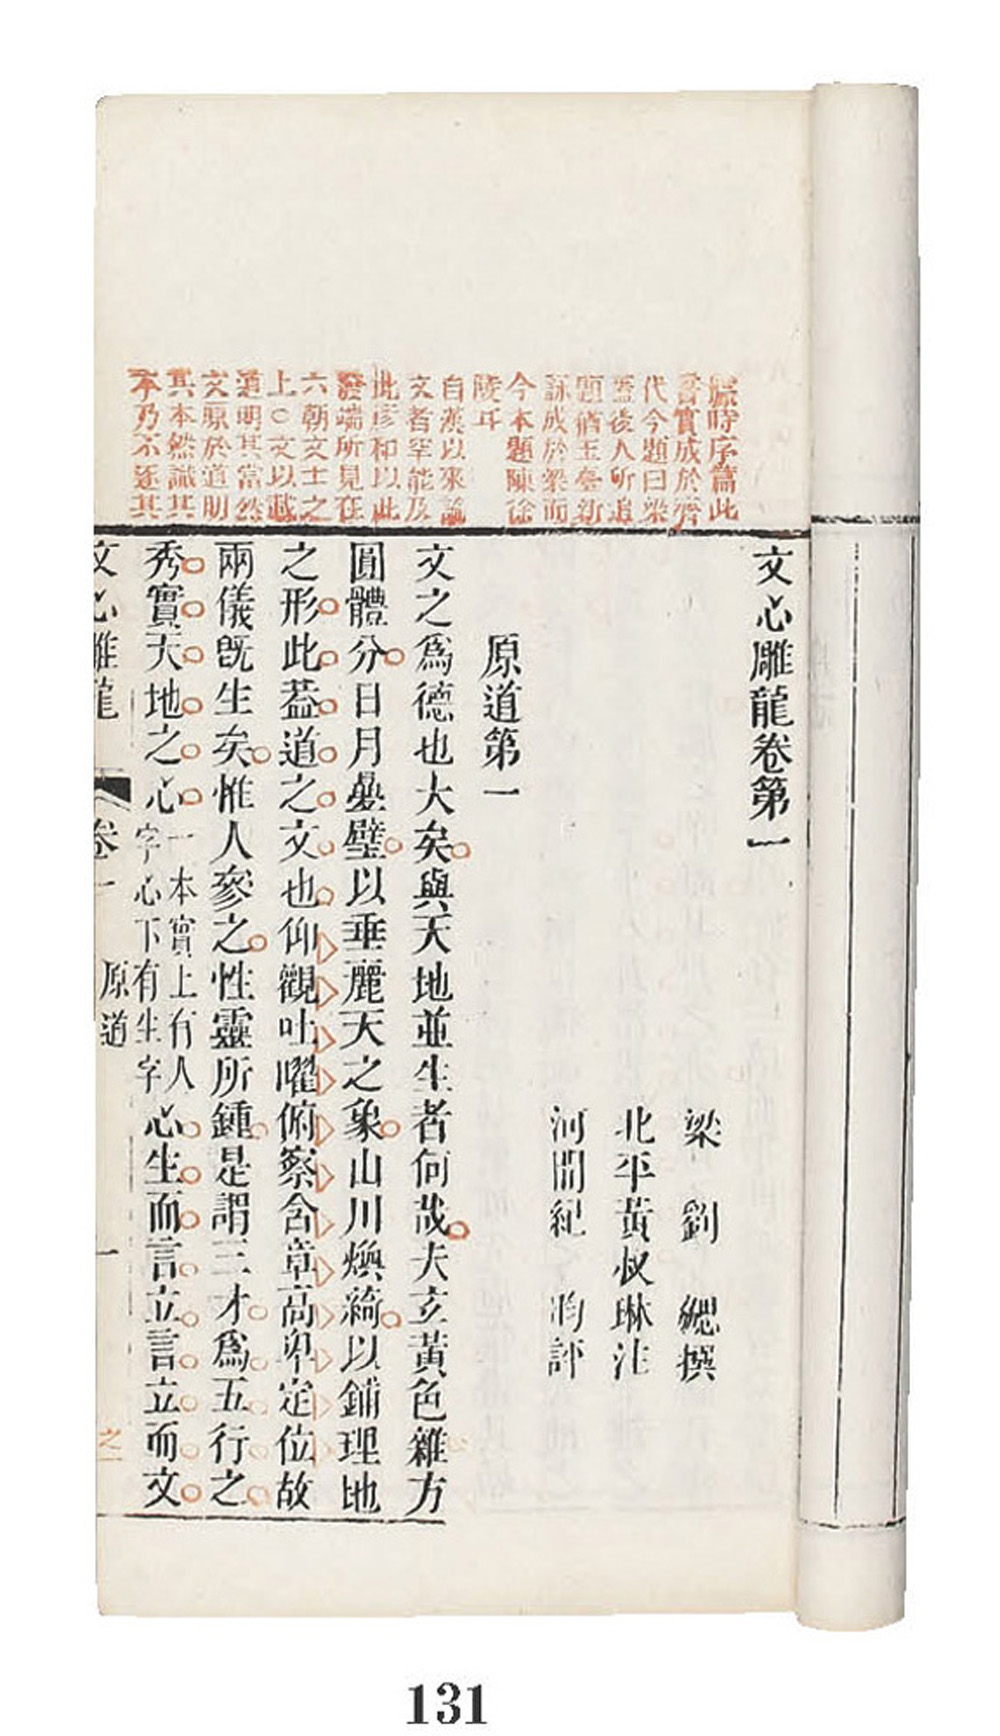 據時序篇此
書實成於齊
代今題曰梁
蓋後人所追
題猶玉臺新
詠成於梁而
今本題陳徐
陵耳
自漢以來論
文者罕能及
此彥和以此
發端所見在
六朝文士之
上○文以載
道明其當然
文原於道明
其本然識其
本乃不逐其
文心雕龍卷第一
梁劉勰撰
北平黃叔琳注
河間紀昀評
原道第一
文之爲德也大矣與天地並生者何哉夫玄黃色雜方
圓體分日月疊璧以垂麗天之象山川煥綺以鋪理地
之形此葢道之文也仰觀吐曜俯察含章高卑定位故
兩儀既生矣惟人參之性靈所鍾是謂三才爲五行之
秀實天地之心一本實上有人字心下有生字心生而言立言立而文
文心雕龍 卷一 原道 一
之一
131